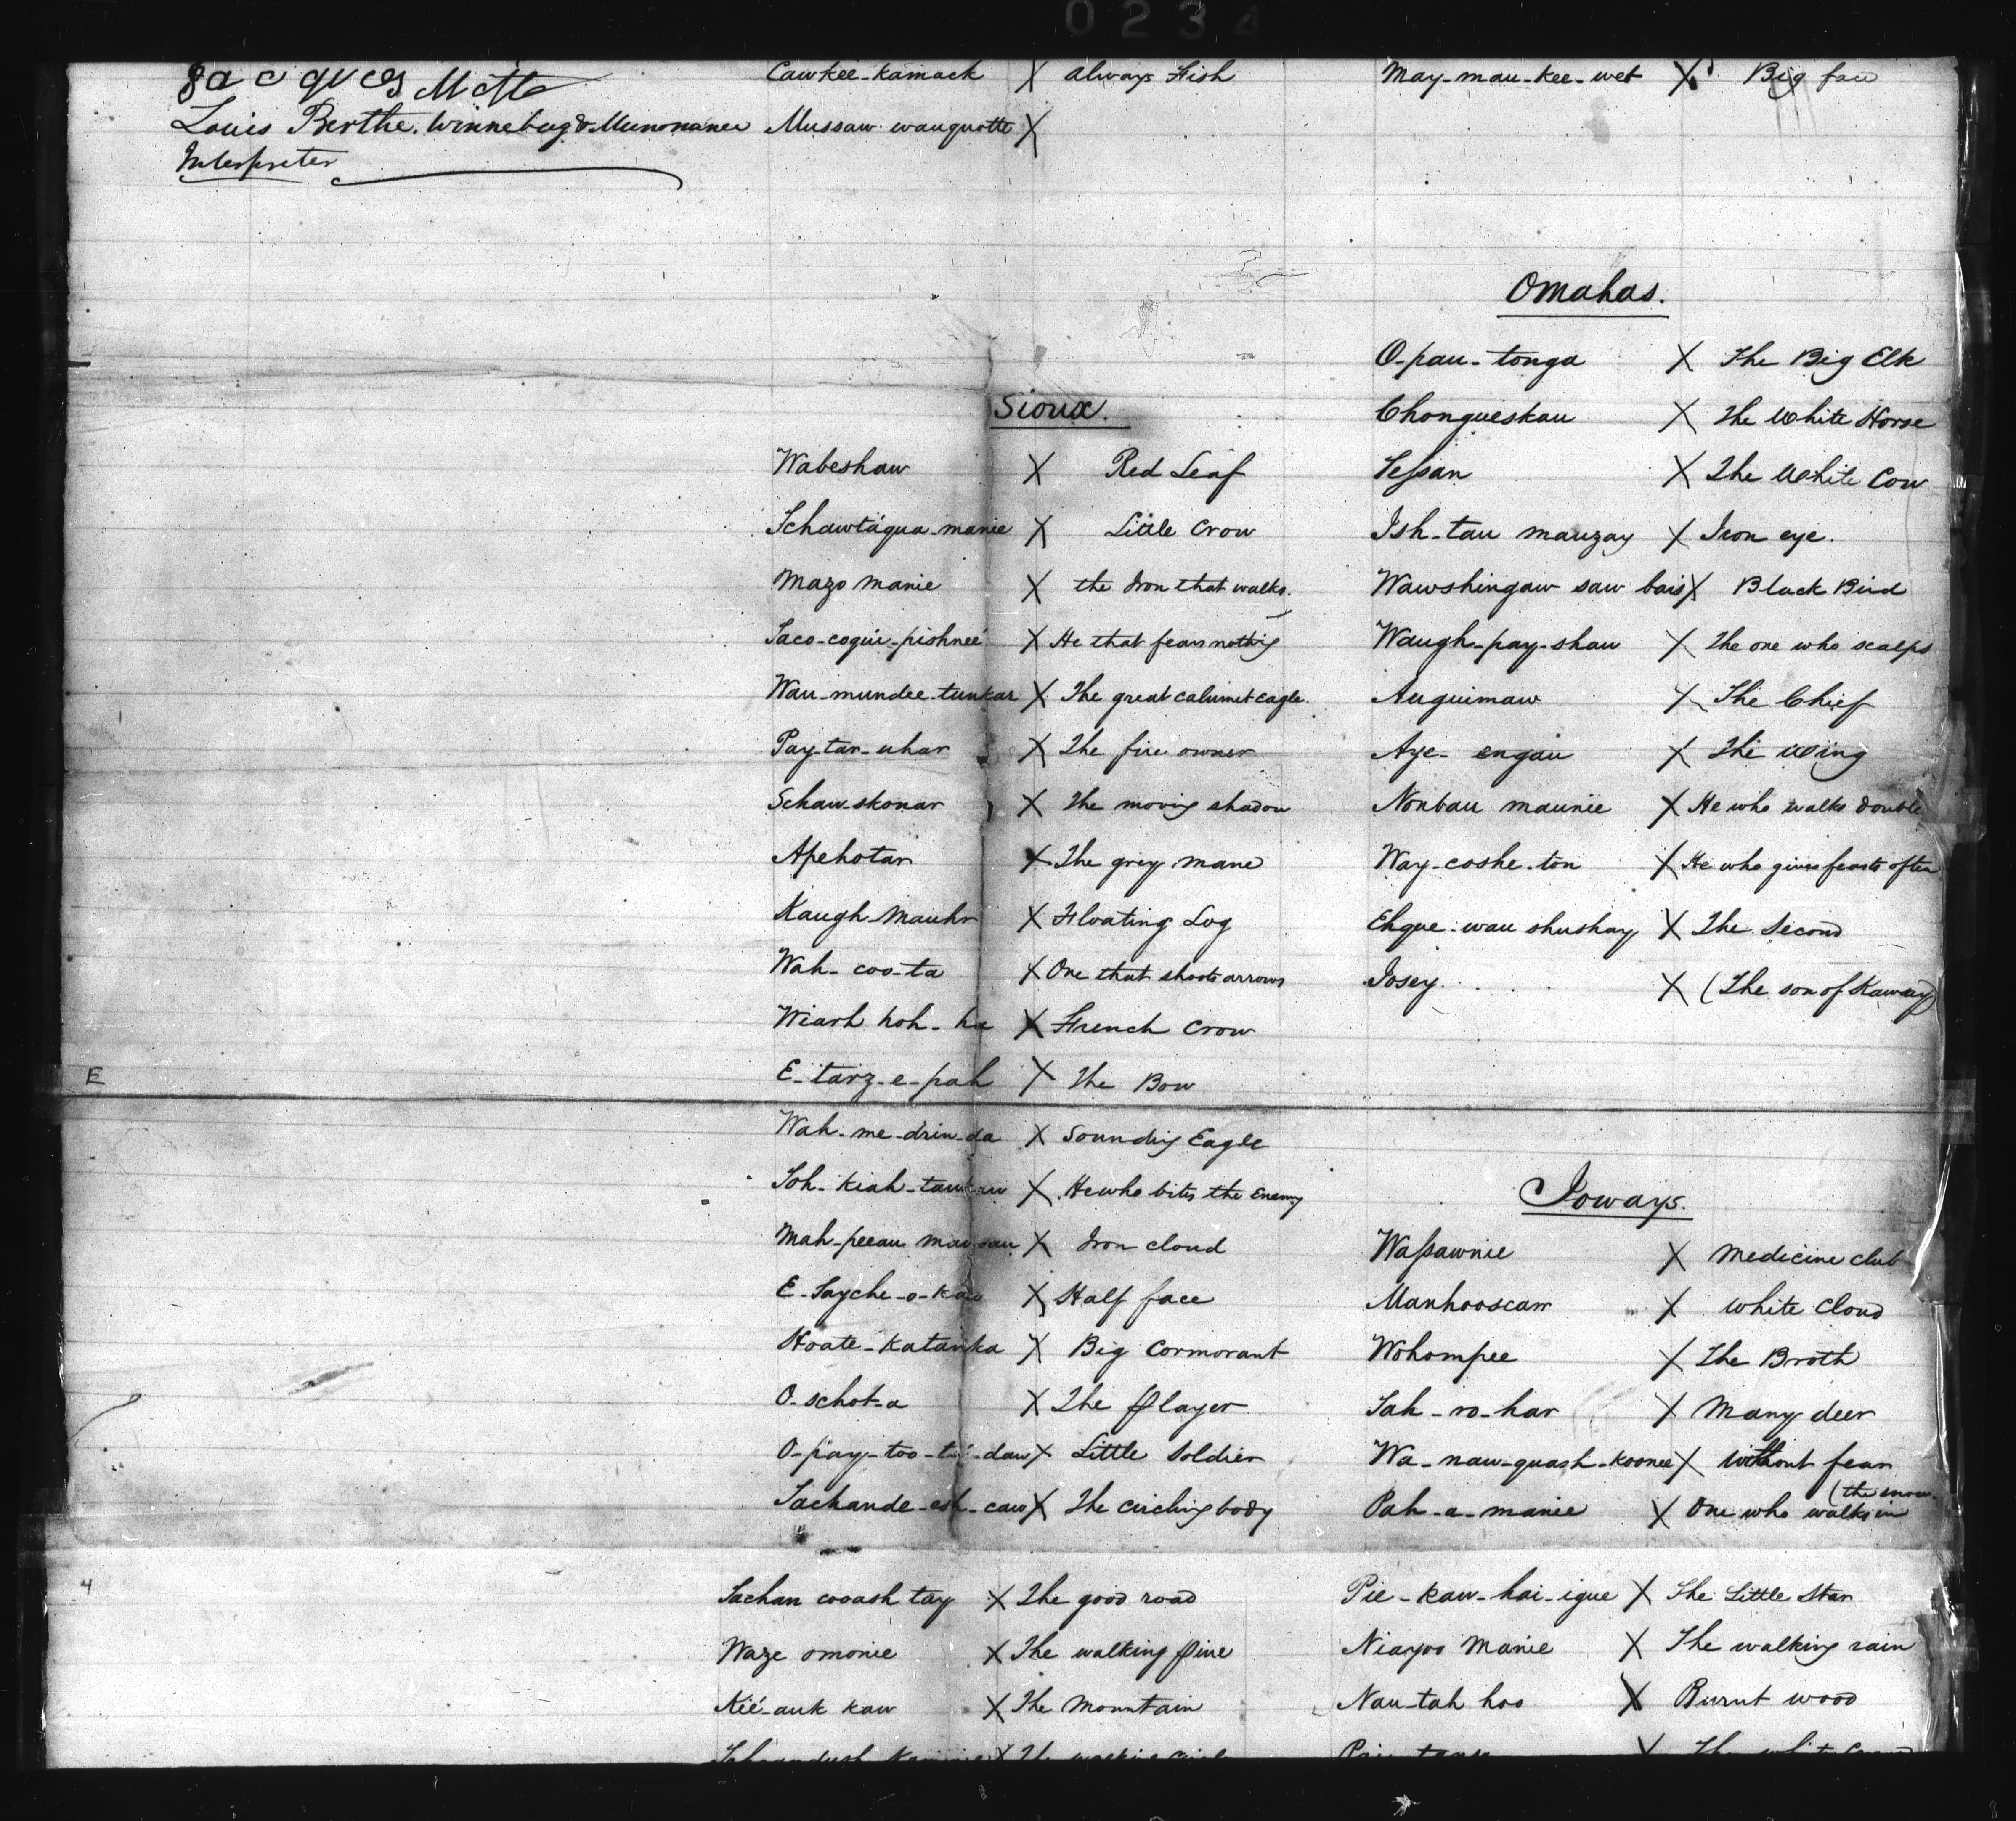 0234
Jacques Mette
Louis Berthe. Winnebag & Menomanee
Interpreter
Cawkee-kamack X always Fish
Mussaw-wauquotte X
May-mau-kee-wet X Big face
Sioux.
Wabeshaw X Red Leaf
Tchawtáqua-manie X Little Crow
Mazo manie X the Iron that walks.
Taco-coqui-pishneé X He that fears nothing
Wau-mundee-tunkar X The great calumet eagle.
Pay-tar-uhar X The fire owner
Schaw-skonar X The moving shadow
Apehotar X The grey mane
Kaugh-Mauhr X Floating Log
Wah-coo-ta X One that shoots arrows
Wiarh hoh-ha X French Crow
E-tarz-e-pah X The Bow
Wah-me-drin-da X Sounding Eagle
Toh-kiah-taw X He who bites the Enemy
Mah-peeau X Iron cloud
E-Tayche-o-kaw X Half face
Hoate-katanka X Big Cormorant
O-schot-a X The player
O-pay-too-daw X Little Soldier
Tachande-esh-caw X The circling body
Tachan cooash tay X The good road
Waze omonie X The walking pine
Kié-auk kaw X The Mountain
Omahas.
O-pau-tonga X The Big Elk
Chongueskau X The White Horse
Tessan X The White Cow
Ish-tau mauzay X Iron eye.
Wawshingaw saw bais X Black Bird
Waugh-pay-shau X The one who scalps
Auguimaw X The Chief
Age-engau X The Wing
Nonbau maunie X He who walks double
Way-coshe-ton X He who gives feasts often
Ehque-wau shushay X The Second
Iosey X (The son of Kawsay)
Ioways.
Wassawnie X Medicine club
Manhooscaw X White Cloud
Wohompee X The Broth
Tah-ro-har X Many deer
Wa-naw-quash-koonee X Without fear
Pah-a-manie X One who walks in (the snow.
Pie-kaw-hai-igue X The Little Star
Niayoo Manie X The walking rain
Nau-tah hoo X Burnt wood
E
4